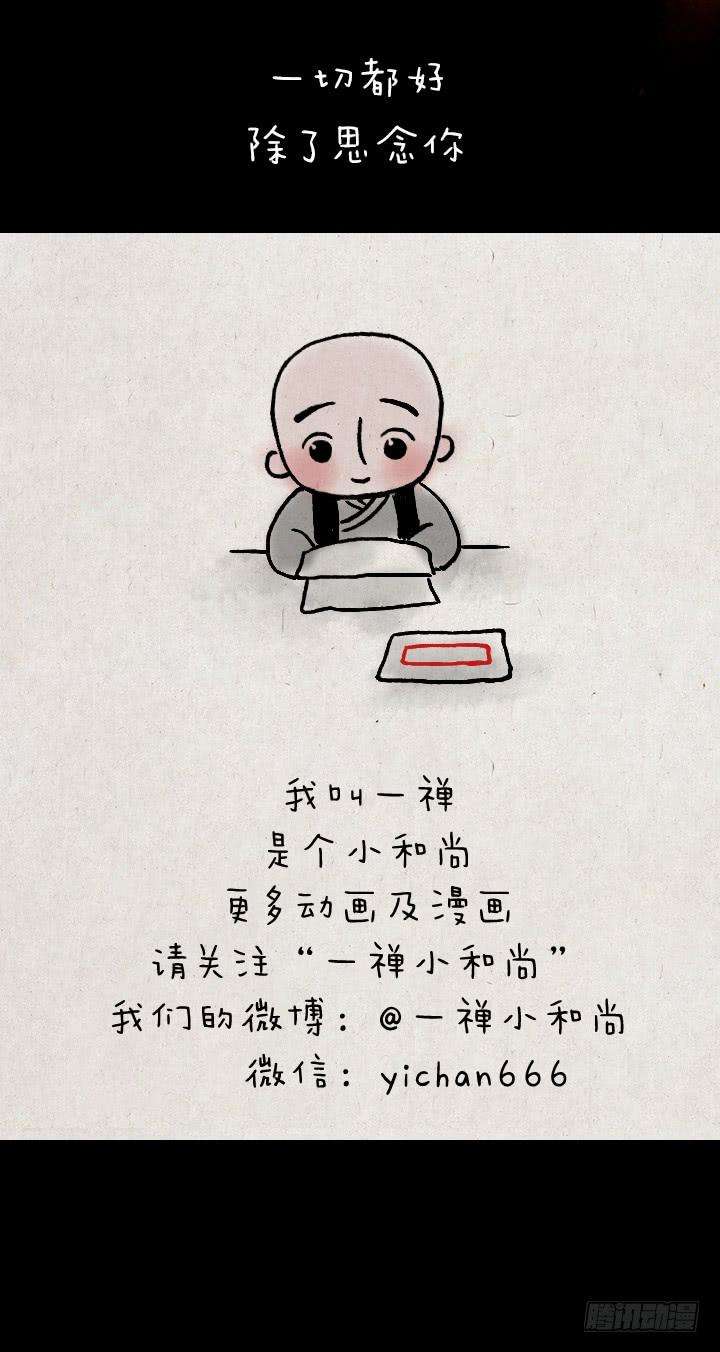 一切都好
除了思念你
我叫一禅
是个小和尚
更多动画及漫画
请关注“一禅小和尚”
我们的微博：@一禅小和尚
微信：yichan666
腾讯动漫